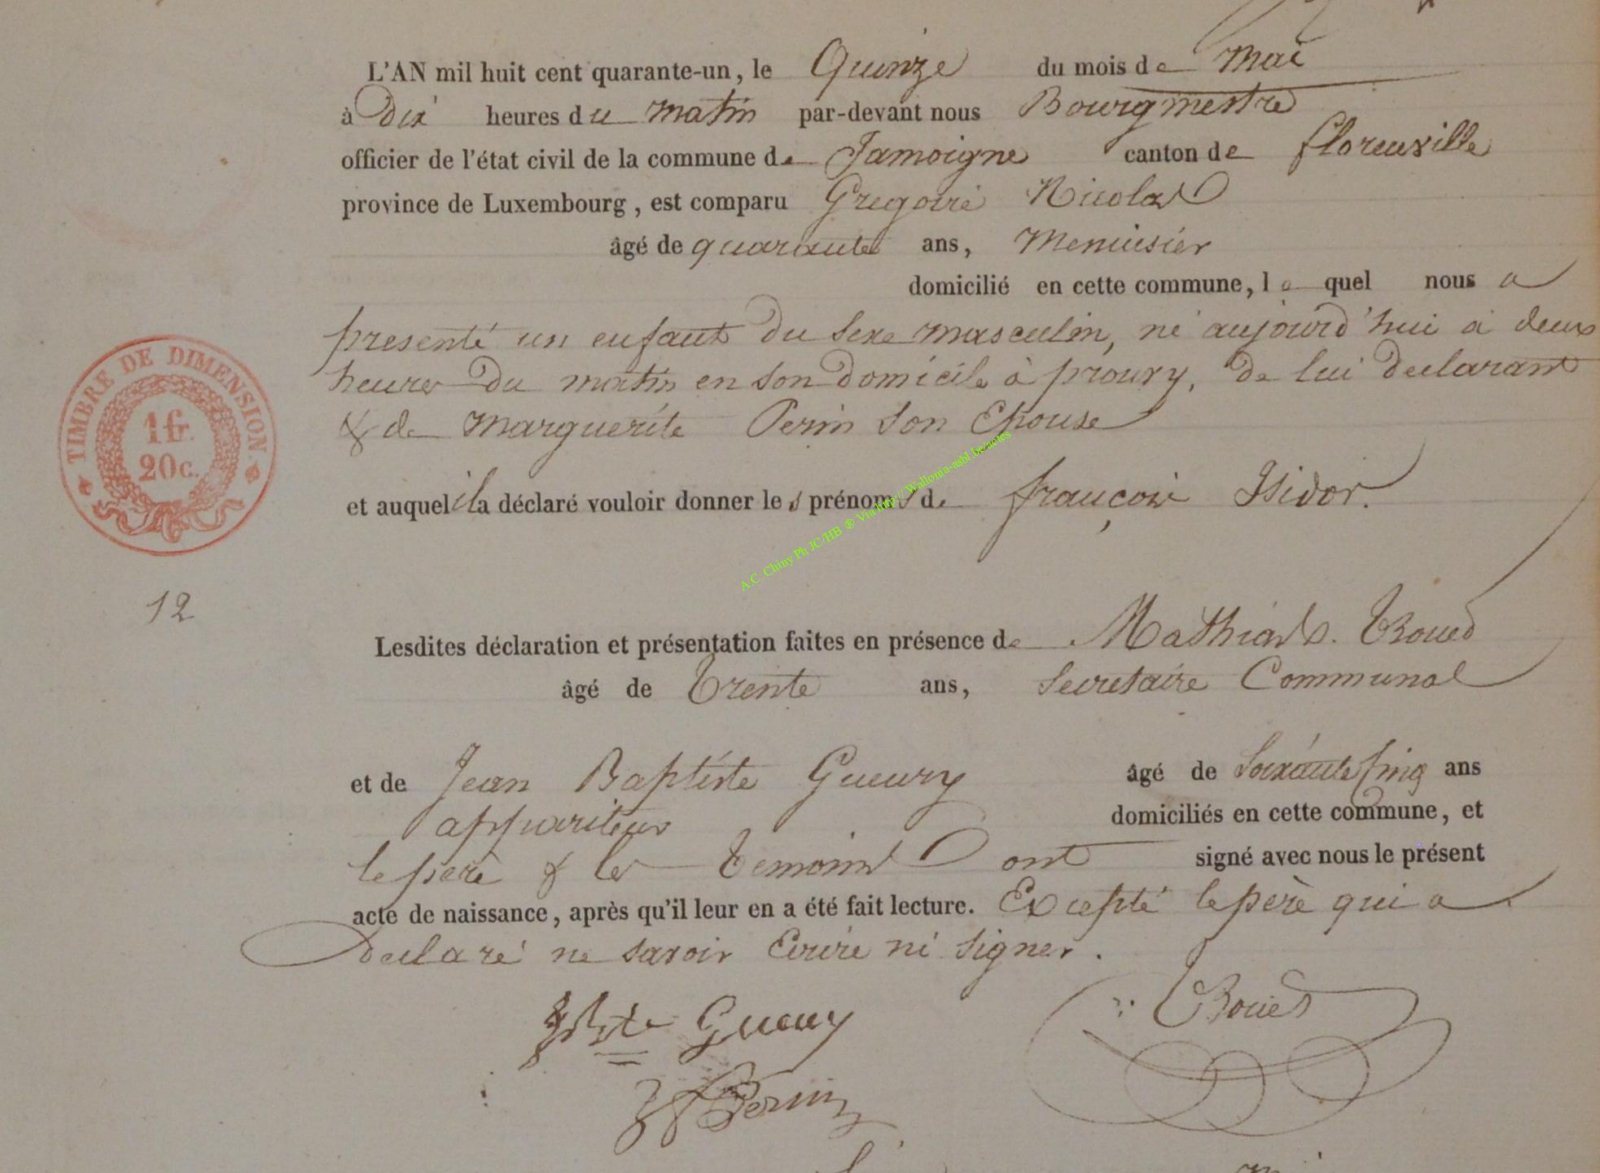 L'AN mil huit cent quarante-un, le Quinze du mois de Mai
à Dix heures du matin par-devant nous Bourgmestre
officier de l'état civil de la commune de Jamoigne canton de florenville
province de Luxembourg, est comparu Gregoire Nicolas
âgé de quarante ans, Menuisier
domicilié en cette commune, le quel nous a
presenté un enfant du sexe masculin, né aujourd'hui à deux
heures du matin en son domicile à prouvy, de lui declarant
& de Marguerite Perin son Epouse
et auquel il a déclaré vouloir donner les prénoms de françois Isidor.
A.C. Chiny Ph JC/HB ®
TIMBRE DE DIMENSION
1 fr.
20 c.
12
Lesdites déclaration et présentation faites en présence de Mathias
âgé de Trente ans, Secretaire Communal
et de Jean Baptiste Gueury âgé de Soixante Cinq ans
appariteur domiciliés en cette commune, et
le père & les Temoins ont signé avec nous le présent
acte de naissance, après qu'il leur en a été fait lecture. Excepté le père qui a
Declaré ne savoir Ecrire ni signer.
Gueury
Perin